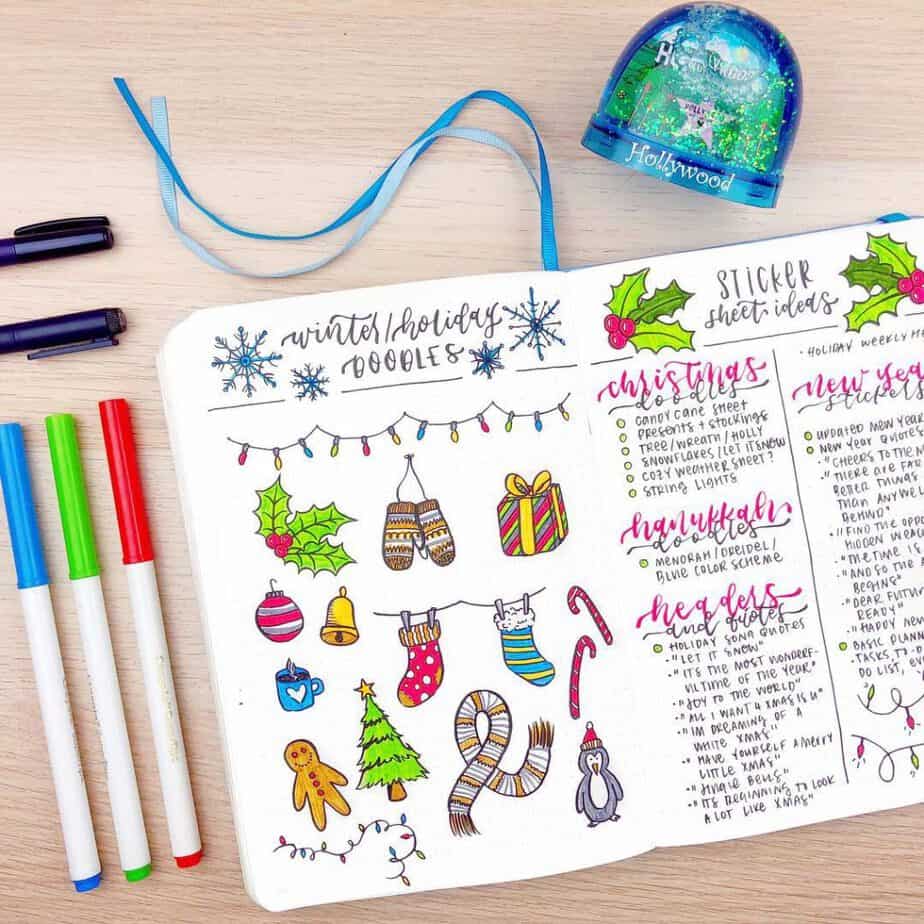 Hollywood
winter/holiday
DOODLES
STICKER
sheet ideas
christmas
doodles
CANDY CANE SHEET
PRESENTS + STOCKINGS
TREE/WREATH/HOLLY
SNOWFLAKES/LET IT SNOW
COZY WEATHER SHEET?
STRING LIGHTS
hanukkah
doodles
MENORAH/DREIDEL/
BLUE COLOR SCHEME
headers
and quotes
HOLIDAY SONG QUOTES
-"LET IT SNOW"
-"IT'S THE MOST WONDERF-
UL TIME OF THE YEAR"
-"JOY TO THE WORLD"
-"ALL I WANT 4 XMAS IS U"
-"I'M DREAMING OF A
WHITE XMAS"
-"HAVE YOURSELF A MERRY
LITTLE XMAS"
-"JINGLE BELLS"
-"IT'S BEGINNING TO LOOK
A LOT LIKE XMAS"
• HOLIDAY WEEKLY
new yea
sticker
UPDATED NEW YEAR
NEW YEAR QUOTES
-"CHEERS TO THE N
-"THERE ARE FAR
BETTER THINGS
THAN ANY WE
BEHIND"
-"FIND THE
HIDDEN
-"THE TIME IS
-"AND SO THE A
BEGINS"
-"DEAR FUTUR
READY"
-"HAPPY NEW
BASIC PLANNE
• TASKS, TO-D
DO LIST,